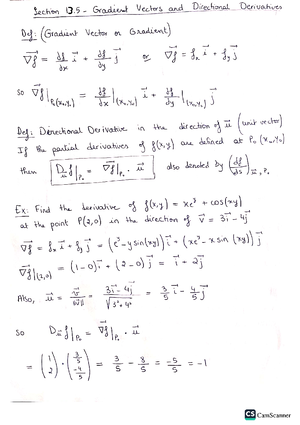 Section 13.5 - Gradient Vectors and Directional Derivatives
Def: (Gradient Vector or Gradient)
∇f = ∂f/∂x i + ∂f/∂y j or ∇f = fₓ i + f_y j
So ∇f|P₀(x₀,y₀) = ∂f/∂x|(x₀,y₀) i + ∂f/∂y|(x₀,y₀) j
Def: Directional Derivative in the direction of u (unit vector)
If the partial derivatives of f(x,y) are defined at P₀ (x₀,y₀)
then D_u f|P₀ = ∇f|P₀ · u also denoted by (df/ds)u,P₀
Ex: Find the derivative of f(x,y) = xe^y + cos(xy)
at the point P(2,0) in the direction of v = 3i - 4j
∇f = fₓ i + f_y j = (e^y - y sin(xy)) i + (xe^y - x sin(xy)) j
∇f|(2,0) = (1-0) i + (2-0) j = i + 2j
Also, u = v/‖v‖ = 3i - 4j/√3²+4² = 3/5 i - 4/5 j
So D_u f|P₀ = ∇f|P₀ · u
= (1 2) · (3/5 -4/5) = 3/5 - 8/5 = -5/5 = -1
CS CamScanner